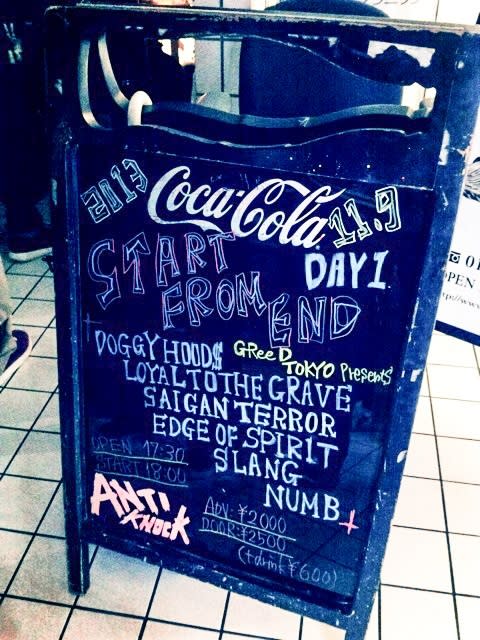 2013 Coca-Cola 11.9
DAY 1
START
FROM END
DOGGY HOOD$ GReeD TOKYO Presents
LOYAL TO THE GRAVE
SAIGAN TERROR
EDGE OF SPIRIT
SLANG
NUMB
OPEN 17:30
START 18:00
ANTI KNOCK
ADV: ¥2000
DOOR: ¥2500
(+drink ¥600)
01
OPEN
http://www